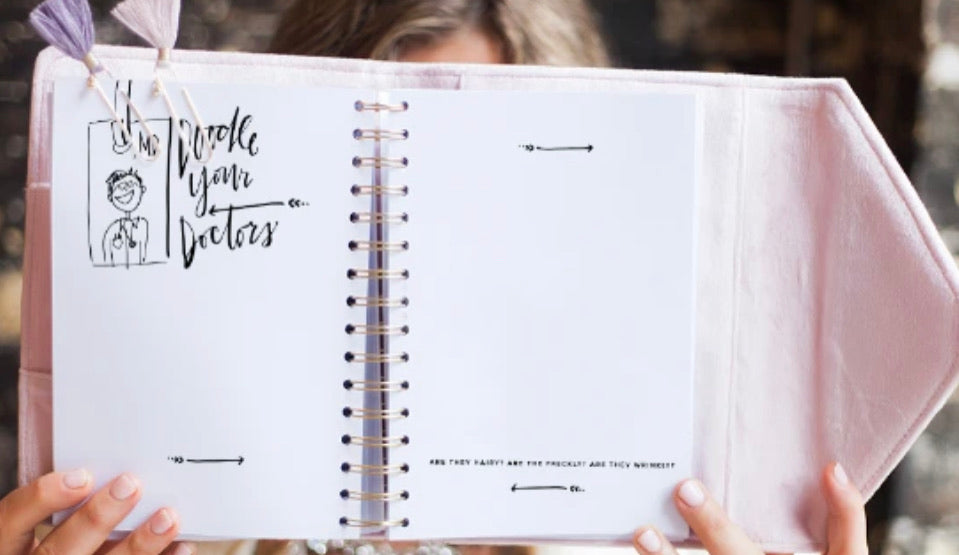 MD
Doodle
your
Doctors
ARE THEY HAIRY? ARE THE FRECKLY? ARE THEY WRINKLY?